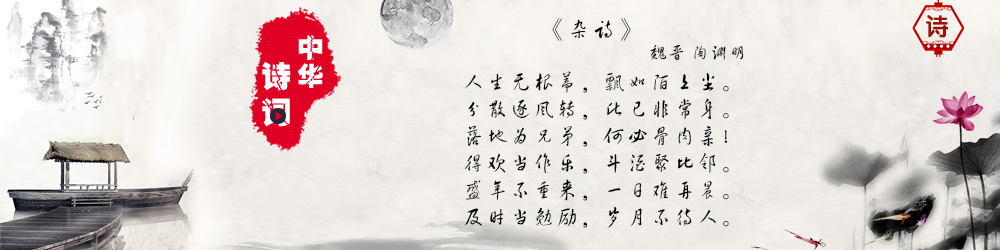 中华
诗词
《杂诗》
魏晋 陶渊明
人生无根蒂，飘如陌上尘。
分散逐风转，此已非常身。
落地为兄弟，何必骨肉亲！
得欢当作乐，斗酒聚比邻。
盛年不重来，一日难再晨。
及时当勉励，岁月不待人。
诗